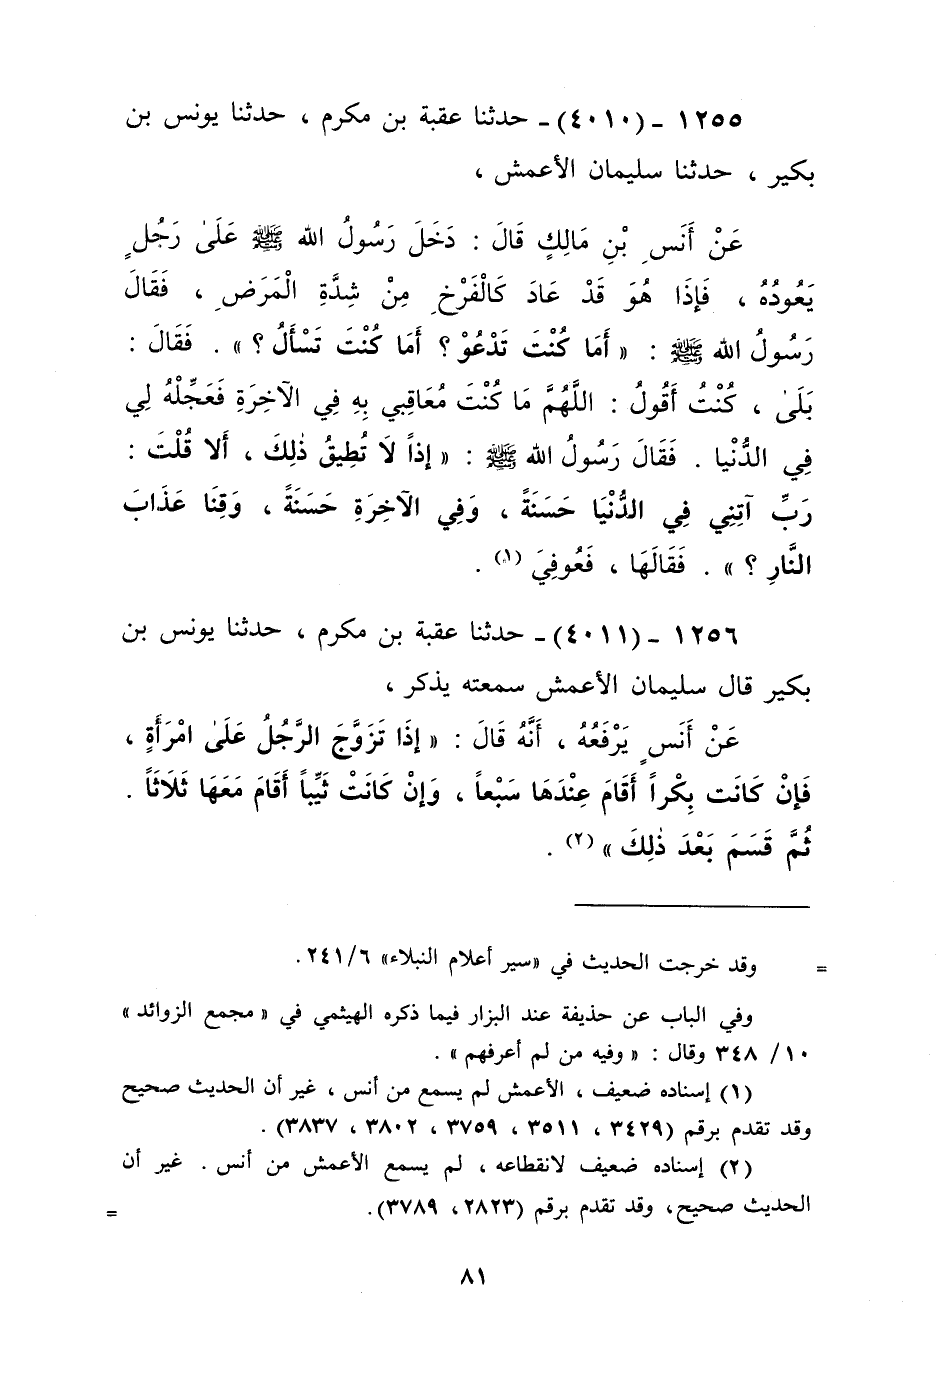 ١٢٥٥ ـ (٤٠١٠) ـ حدثنا عقبة بن مكرم ، حدثنا يونس بن
بكير ، حدثنا سليمان الأعمش ،
عَنْ أَنَسِ بْنِ مَالِكٍ قَالَ : دَخَلَ رَسُولُ الله ﷺ عَلَىٰ رَجُلٍ
يَعُودُهُ ، فَإِذَا هُوَ قَدْ عَادَ كَالْفَرْخِ مِنْ شِدَّةِ الْمَرَضِ ، فَقَالَ
رَسُولُ الله ﷺ : « أَمَا كُنْتَ تَدْعُوْ ؟ أَمَا كُنْتَ تَسْأَلُ ؟ » . فَقَالَ :
بَلَىٰ ، كُنْتُ أَقُولُ : اللَّهُمَّ مَا كُنْتَ مُعَاقِبي بِهِ فِي الآخِرَةِ فَعَجِّلْهُ لِي
فِي الدُّنْيا . فَقَالَ رَسُولُ الله ﷺ : « إِذاً لَا تُطِيقُ ذٰلِكَ ، أَلا قُلْتَ :
رَبِّ آتِنِي فِي الدُّنْيَا حَسَنَةً ، وَفِي الآخِرَةِ حَسَنَةً ، وَقِنَا عَذَابَ
النَّارِ ؟ » . فَقَالَهَا ، فَعُوفِيَ (١) .
١٢٥٦ ـ (٤٠١١) ـ حدثنا عقبة بن مكرم ، حدثنا يونس بن
بكير قال سليمان الأعمش سمعته يذكر ،
عَنْ أَنَسٍ يَرْفَعُهُ ، أَنَّهُ قَالَ : « إِذَا تَزَوَّجَ الرَّجُلُ عَلَىٰ امْرَأَةٍ ،
فَإِنْ كَانَت بِكْراً أَقَامَ عِنْدَهَا سَبْعاً ، وَإِنْ كَانَتْ ثَيِّباً أَقَامَ مَعَهَا ثَلَاثَاً .
ثُمَّ قَسَمَ بَعْدَ ذٰلِكَ » (٢) .
= وقد خرجت الحديث في «سير أعلام النبلاء» ٢٤١/٦.
وفي الباب عن حذيفة عند البزار فيما ذكره الهيثمي في « مجمع الزوائد »
١٠/ ٣٤٨ وقال : « وفيه من لم أعرفهم » .
(١) إسناده ضعيف ، الأعمش لم يسمع من أنس ، غير أن الحديث صحيح
وقد تقدم برقم (٣٤٢٩ ، ٣٥١١ ، ٣٧٥٩ ، ٣٨٠٢ ، ٣٨٣٧) .
(٢) إسناده ضعيف لانقطاعه ، لم يسمع الأعمش من أنس . غير أن
الحديث صحيح، وقد تقدم برقم (٢٨٢٣، ٣٧٨٩). =
٨١